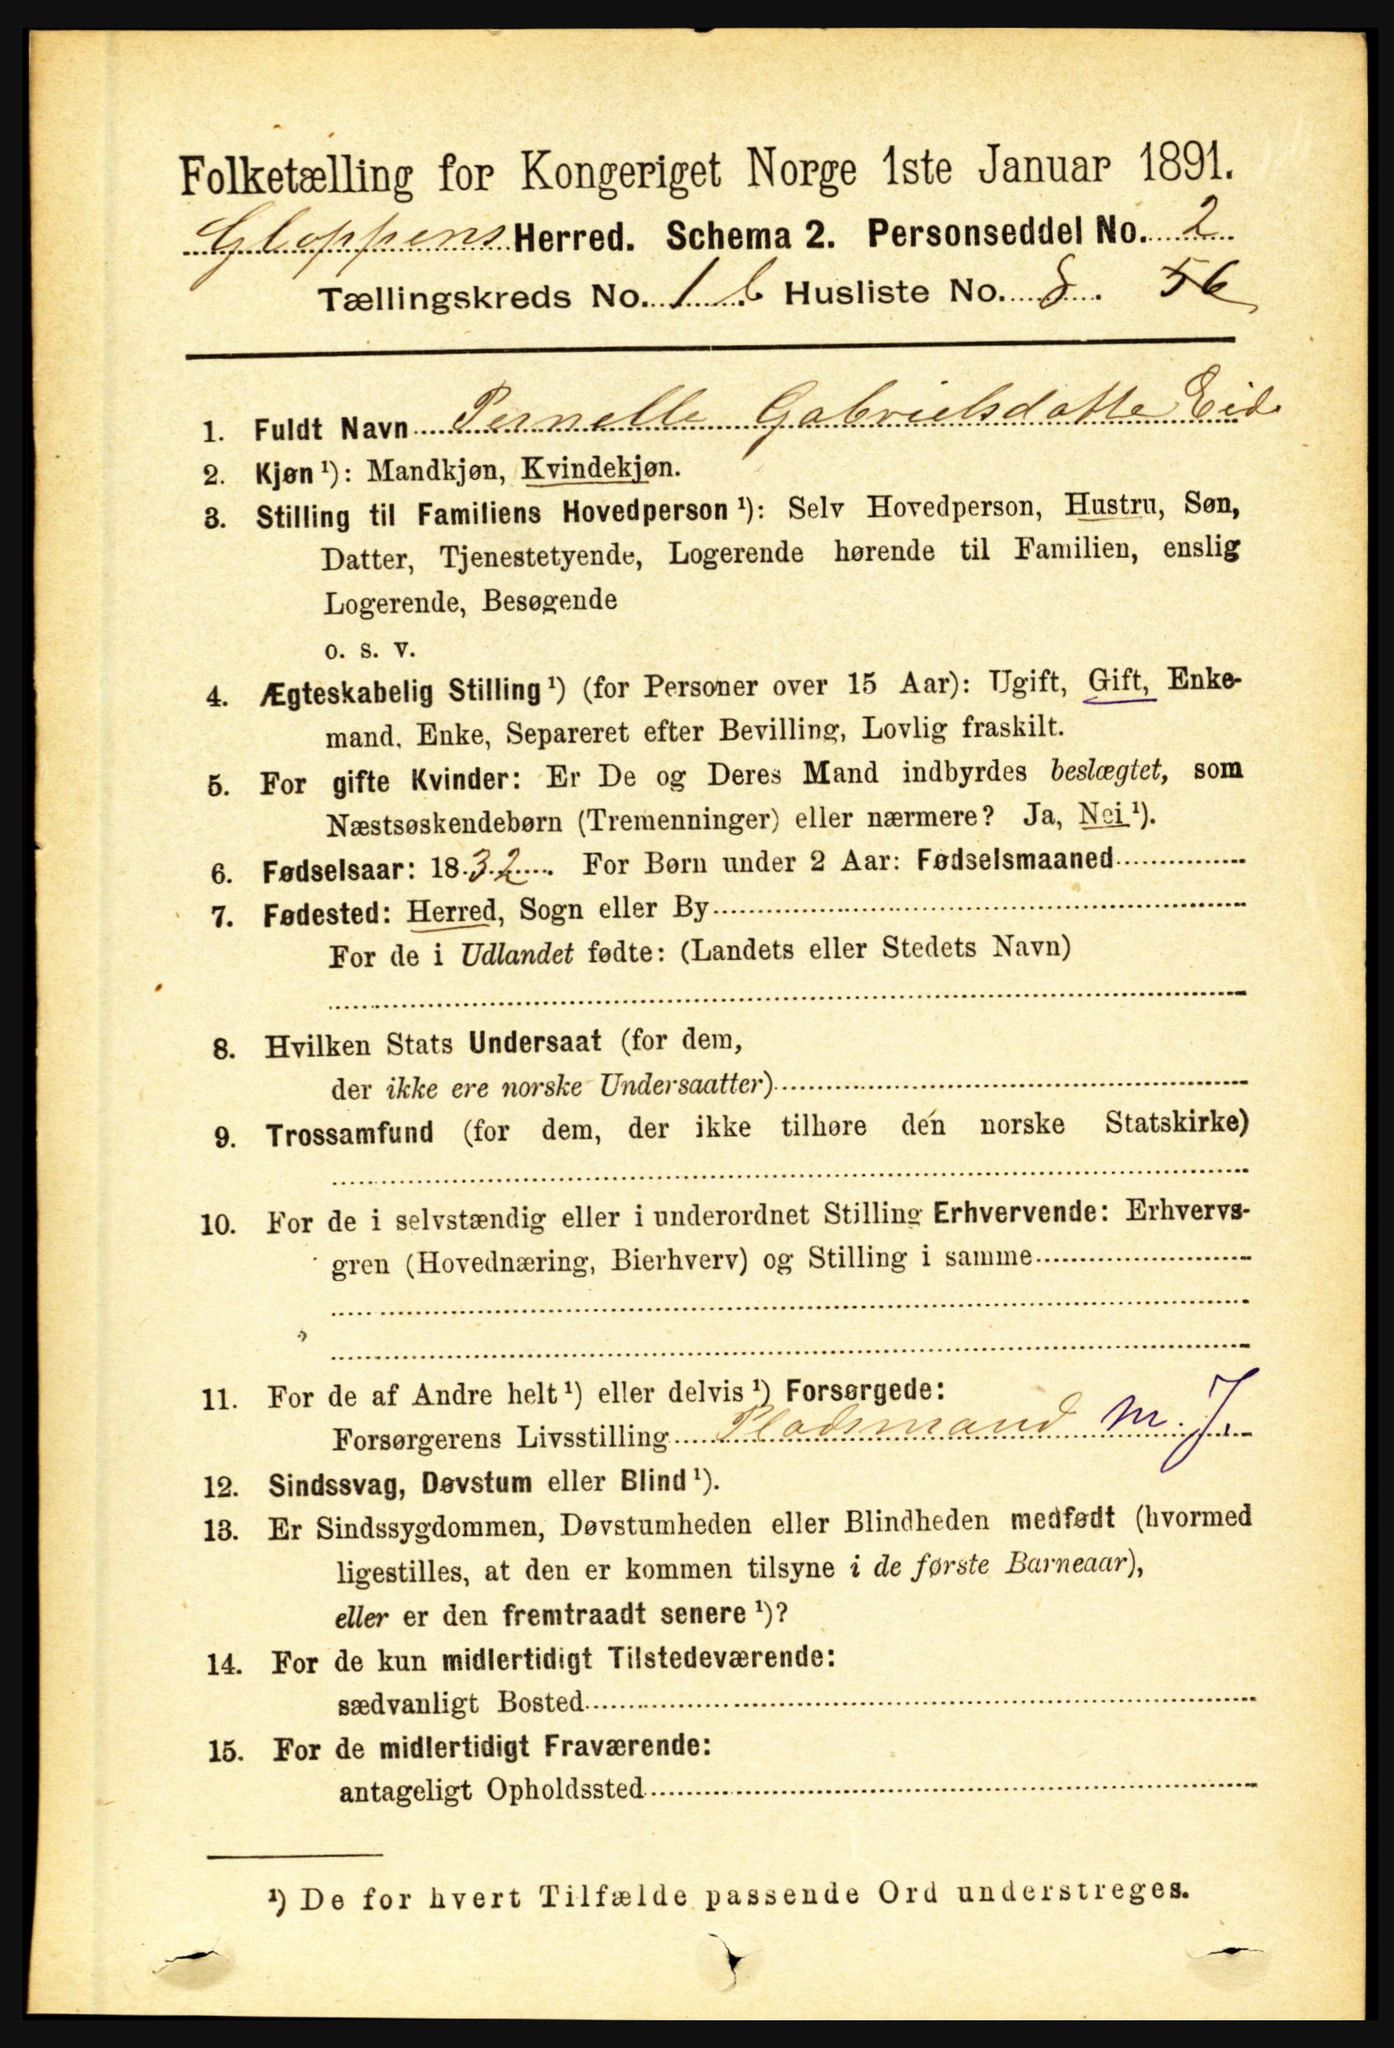 Folketælling for Kongeriget Norge 1ste Januar 1891.
Gloppens Herred. Schema 2. Personseddel No. 2
Tællingskreds No. 1 b Husliste No. 8. 56
1. Fuldt Navn Pernelle Gabrielsdatte Eide
2. Kjøn ¹): Mandkjøn, Kvindekjøn.
3. Stilling til Familiens Hovedperson ¹): Selv Hovedperson, Hustru, Søn,
Datter, Tjenestetyende, Logerende hørende til Familien, enslig
Logerende, Besøgende
o. s. v.
4. Ægteskabelig Stilling ¹) (for Personer over 15 Aar): Ugift, Gift, Enke-
mand, Enke, Separeret efter Bevilling, Lovlig fraskilt.
5. For gifte Kvinder: Er De og Deres Mand indbyrdes beslægtet, som
Næstsøskendebørn (Tremenninger) eller nærmere? Ja, Nei ¹).
6. Fødselsaar: 1832. For Børn under 2 Aar: Fødselsmaaned
7. Fødested: Herred, Sogn eller By
For de i Udlandet fødte: (Landets eller Stedets Navn)
8. Hvilken Stats Undersaat (for dem,
der ikke ere norske Undersaatter)
9. Trossamfund (for dem, der ikke tilhøre den norske Statskirke)
10. For de i selvstændig eller i underordnet Stilling Erhvervende: Erhvervs-
gren (Hovednæring, Bierhverv) og Stilling i samme
11. For de af Andre helt ¹) eller delvis ¹) Forsørgede:
Forsørgerens Livsstilling Pladsmand m. J.
12. Sindssvag, Døvstum eller Blind ¹).
13. Er Sindssygdommen, Døvstumheden eller Blindheden medfødt (hvormed
ligestilles, at den er kommen tilsyne i de første Barneaar),
eller er den fremtraadt senere ¹)?
14. For de kun midlertidigt Tilstedeværende:
sædvanligt Bosted
15. For de midlertidigt Fraværende:
antageligt Opholdssted
¹) De for hvert Tilfælde passende Ord understreges.